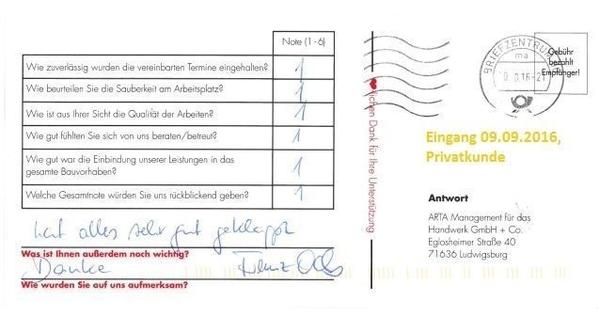 Note (1-6)
Wie zuverlässig wurden die vereinbarten Termine eingehalten? 1
Wie beurteilen Sie die Sauberkeit am Arbeitsplatz? 1
Wie ist aus Ihrer Sicht die Qualität der Arbeiten? 1
Wie gut fühlten Sie sich von uns beraten/betreut? 1
Wie gut war die Einbindung unserer Leistungen in das
gesamte Bauvorhaben? 1
Welche Gesamtnote würden Sie uns rückblickend geben? 1
hat alles sehr gut geklappt
Was ist Ihnen außerdem noch wichtig?
Danke
Wie wurden Sie auf uns aufmerksam?
lichen Dank für Ihre Unterstützung
BRIEFZENTRUM
ma
Gebühr
bezahlt
Empfänger!
Eingang 09.09.2016,
Privatkunde
Antwort
ARTA Management für das
Handwerk GmbH + Co.
Eglosheimer Straße 40
71636 Ludwigsburg